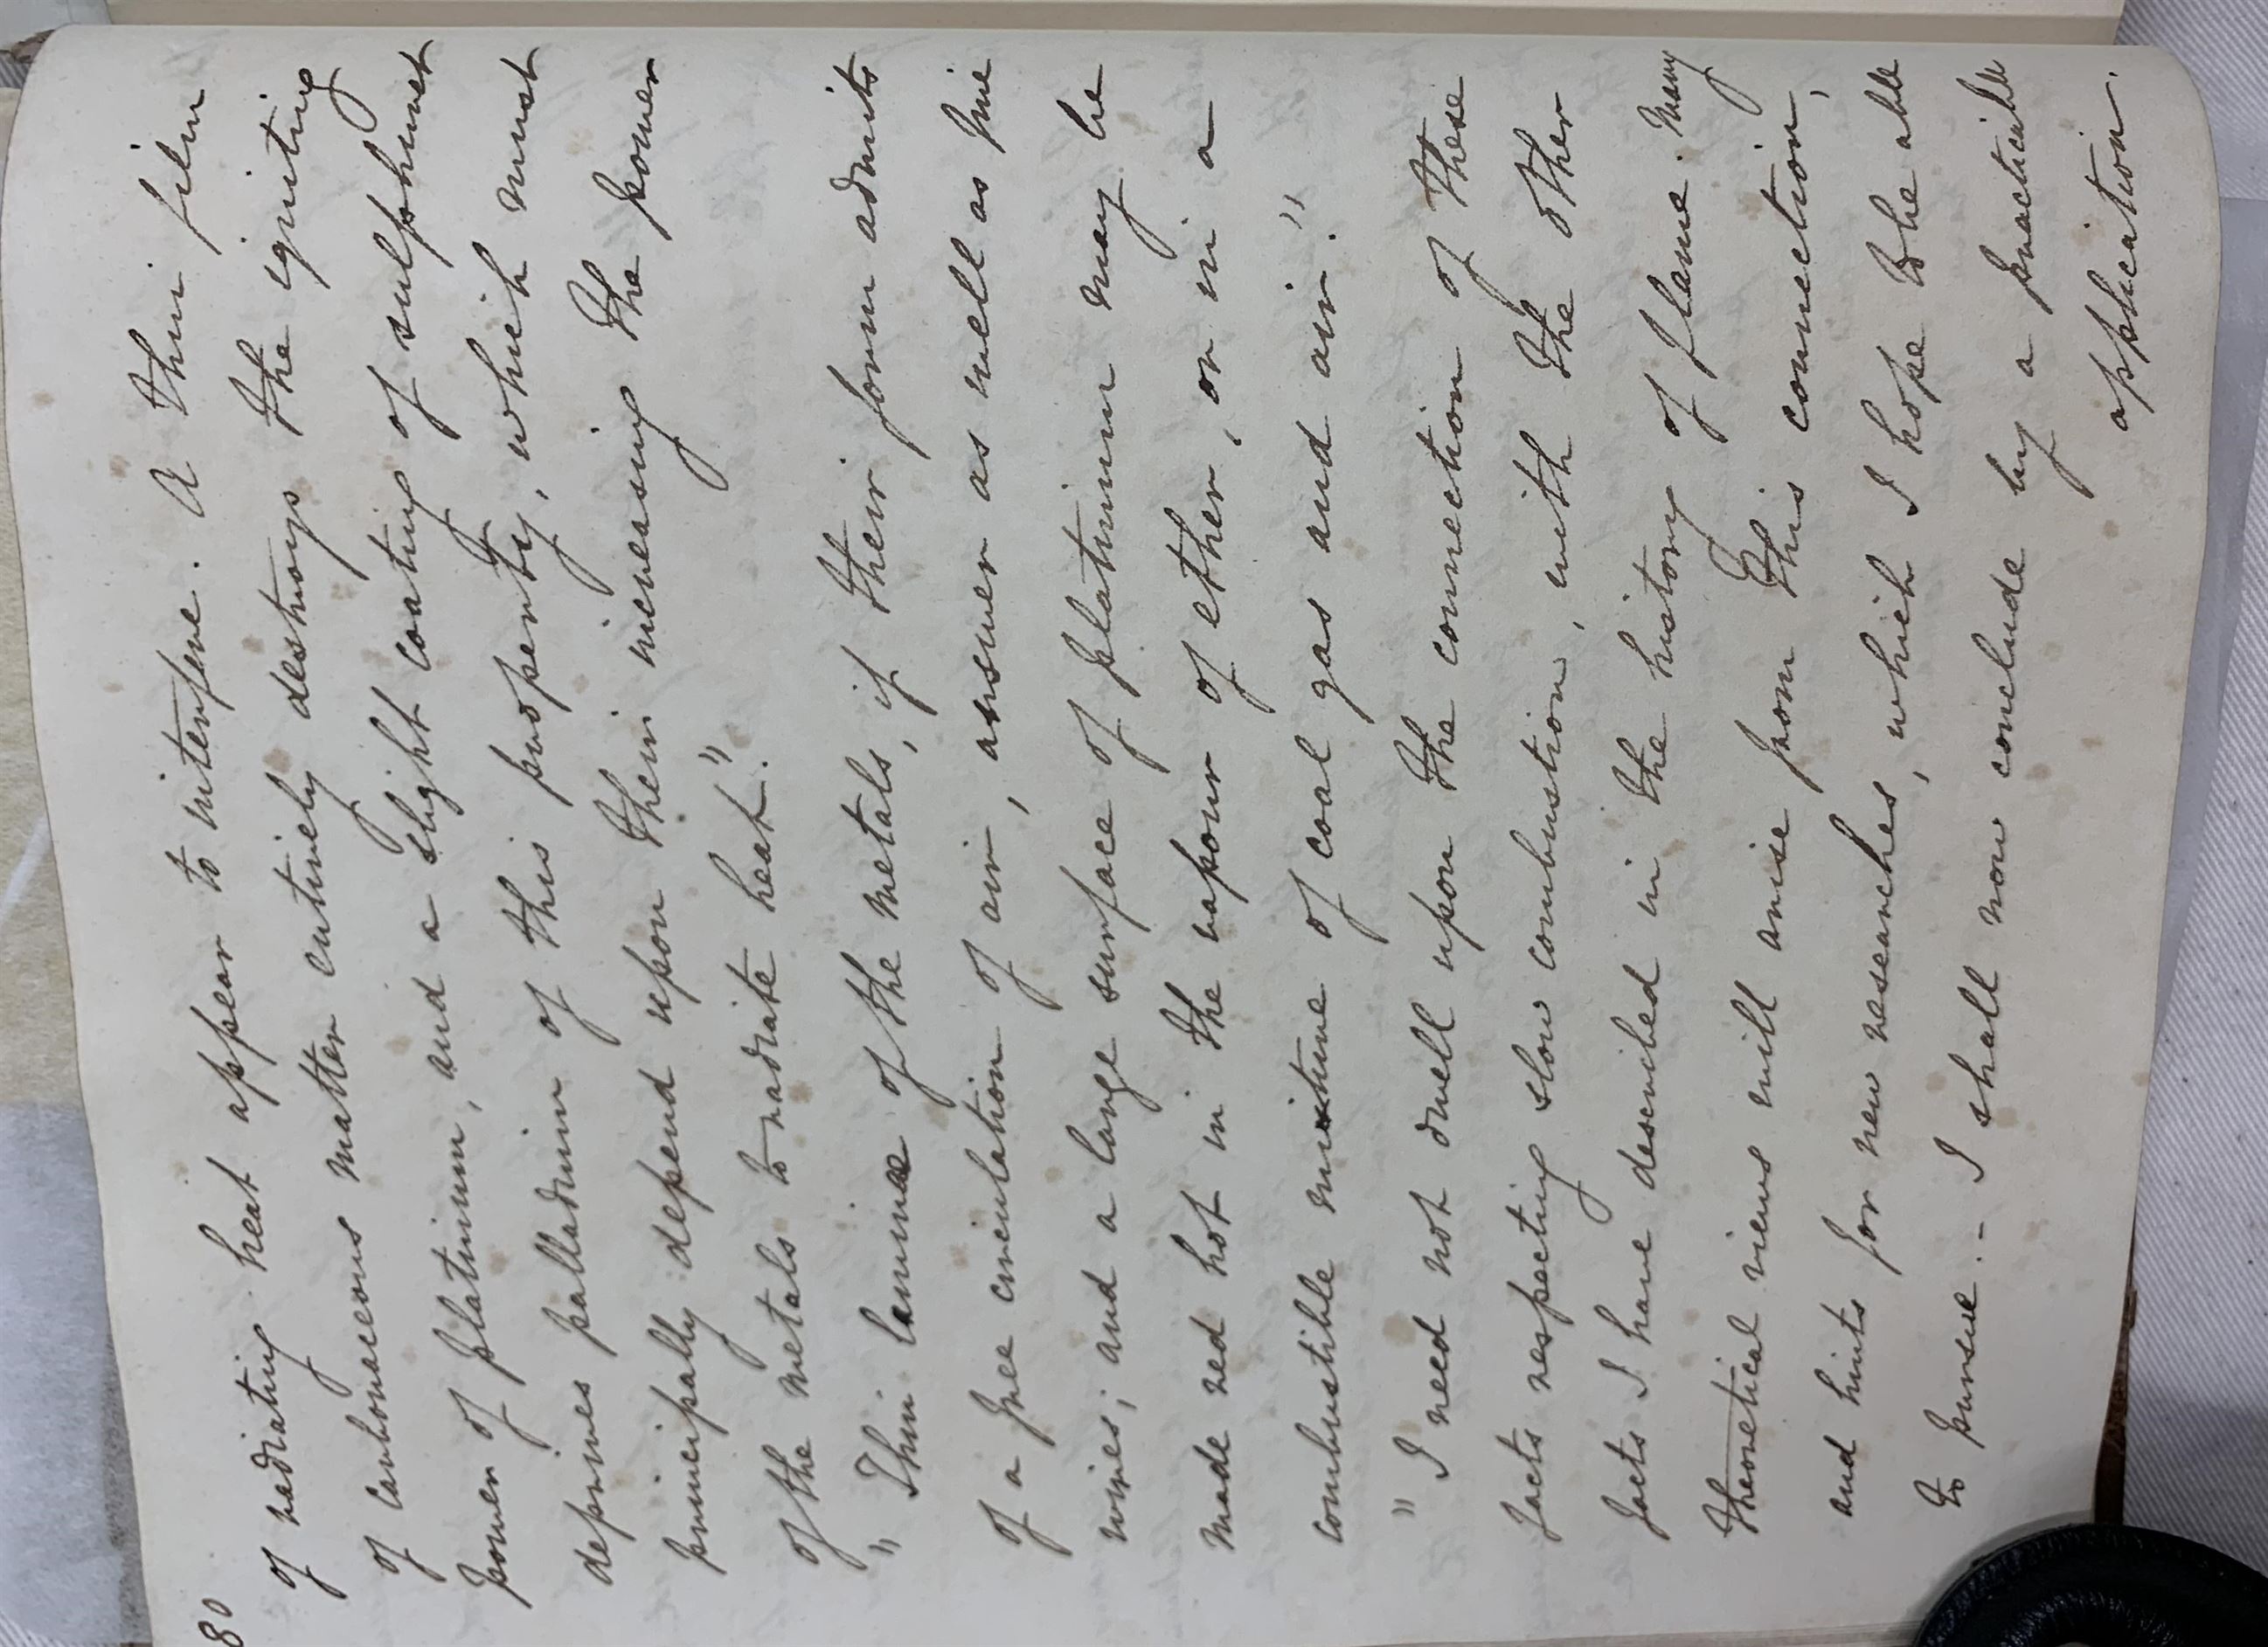 80
of radiating heat appear to interfere. A thin film
of carbonaceous matter entirely destroys the igniting
power of platinum, and a slight coating of sulphuret
deprives palladium of this property, which must
principally depend upon their increasing the power
of the metals to radiate heat."
" Thin laminae of the metals, if their form admits
of a free circulation of air, answer as well as fine
wires; and a large surface of platinum may be
made red hot in the vapour of ether, or in a
combustible mixture of coal gas and air."
" I need not dwell upon the connection of these
facts respecting slow combustion, with the other
facts I have described in the history of flame. Many
theoretical views will arise from this connection,
and hints for new researches, which I hope to be able
to pursue. - I shall now conclude by a practicable
application.